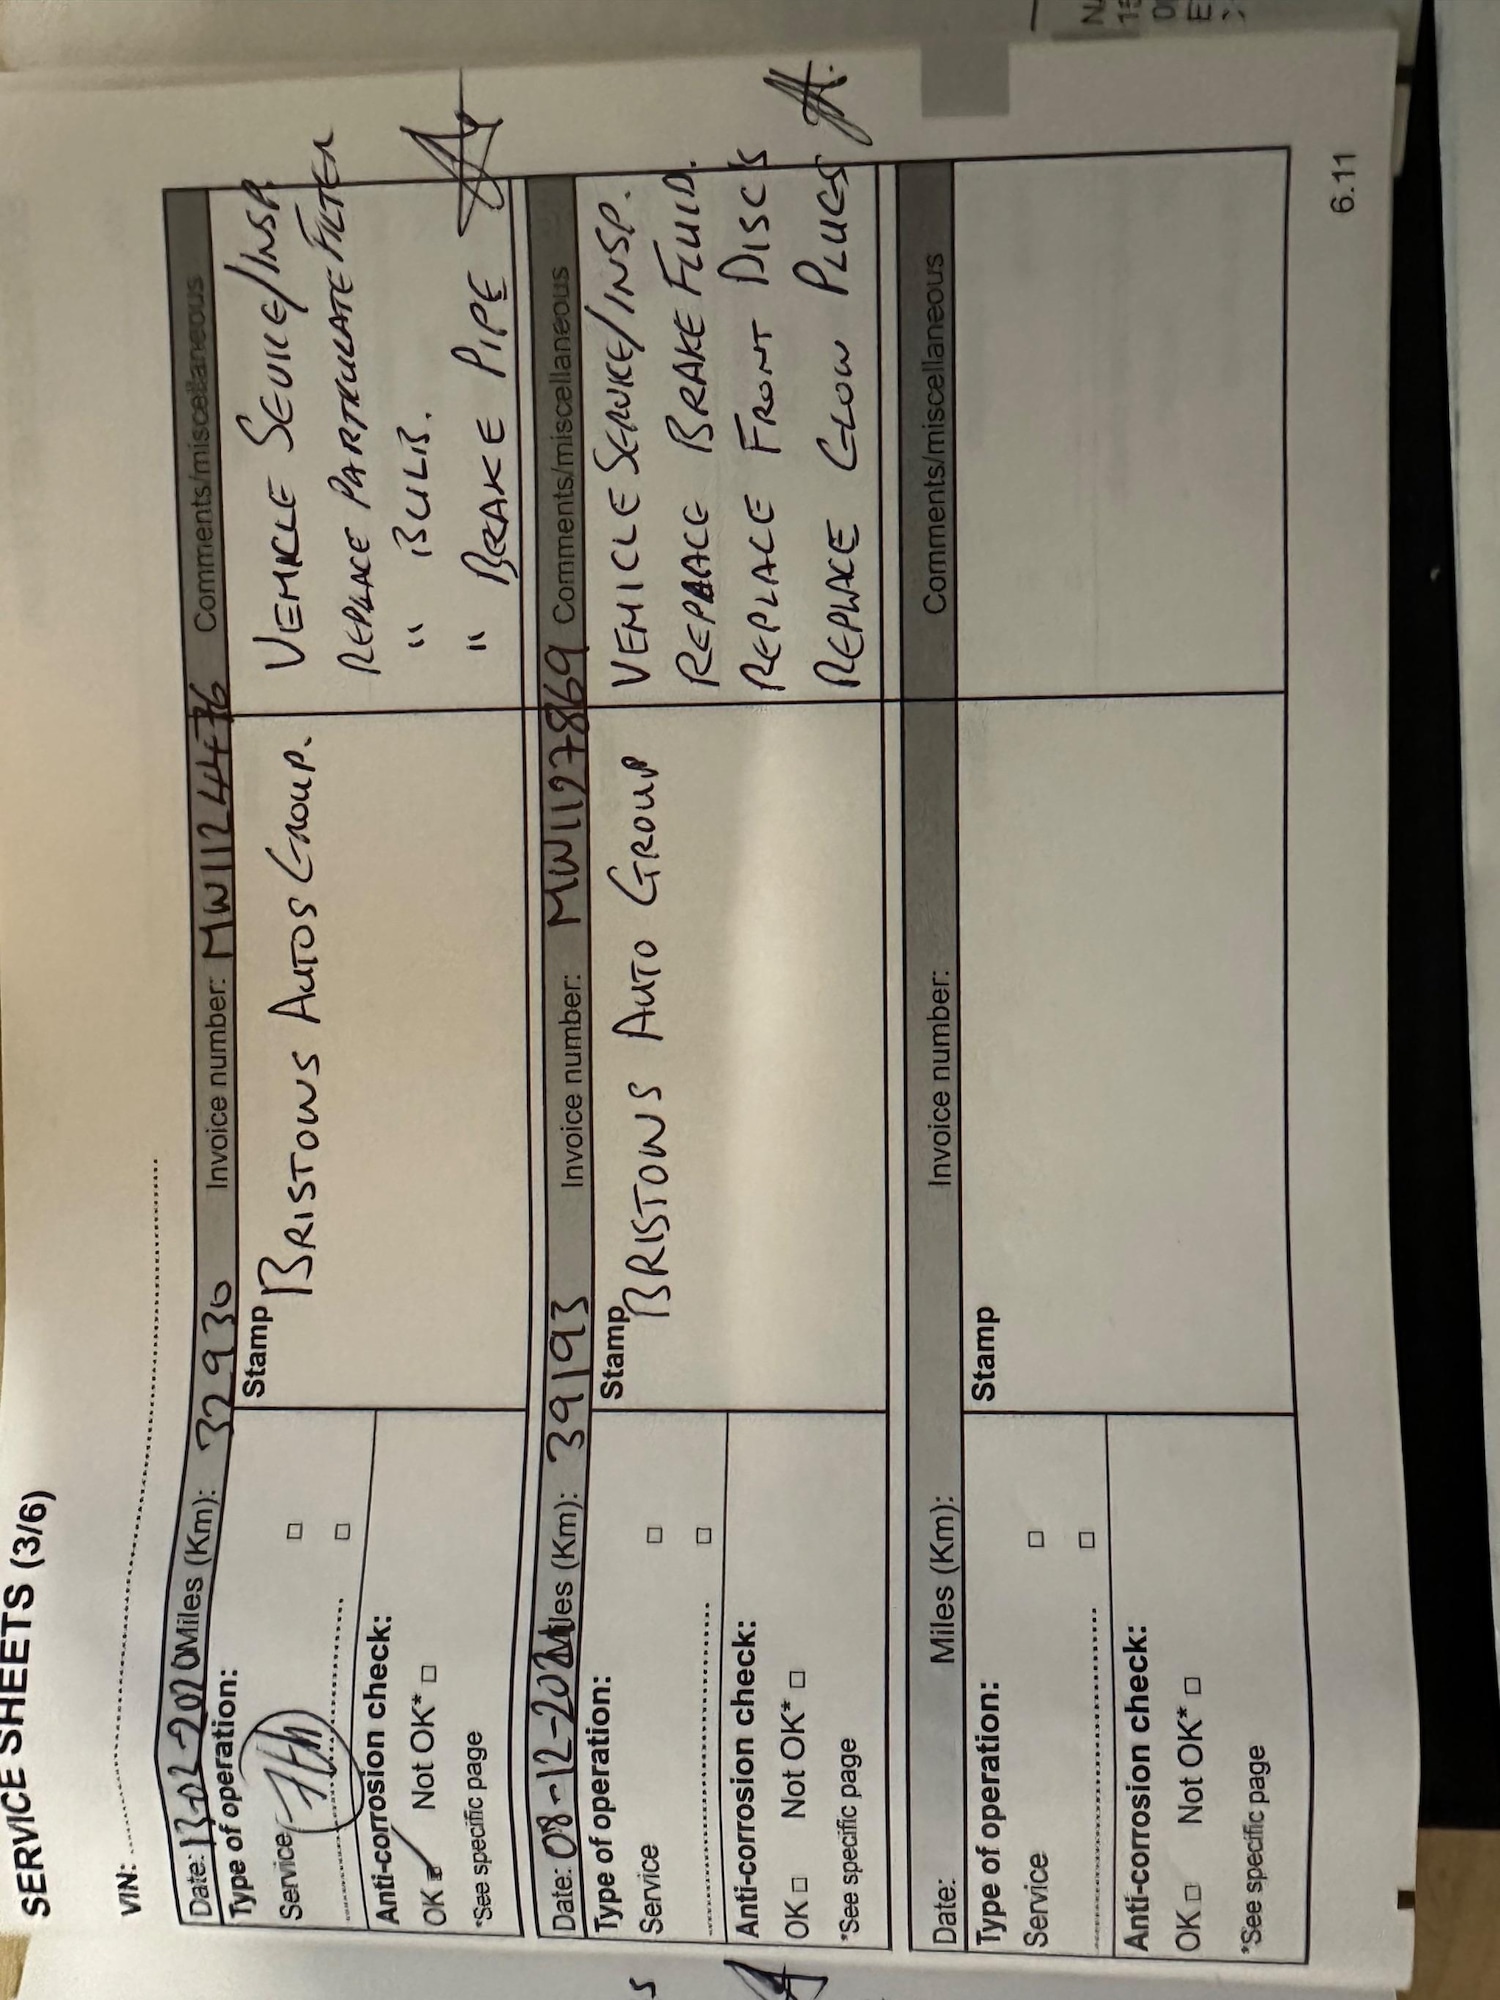 SERVICE SHEETS (3/6)
VIN:
Date: 13-02-2020 Miles (Km): 32930 Invoice number: MW1124476 Comments/miscellaneous
Type of operation:
Service 7th
Anti-corrosion check:
OK Not OK*
*See specific page
Stamp
BRISTOWS AUTOS GROUP.
VEHICLE SEVICE/INSP
REPLACE PARTICULATE FILTER
" BULB.
" BRAKE PIPE
Date: 08-12-202 Miles (Km): 39193 Invoice number: MW1127869 Comments/miscellaneous
Type of operation:
Service
Anti-corrosion check:
OK Not OK*
*See specific page
Stamp
BRISTOWS AUTO GROUP
VEHICLE SERVICE/INSP.
REPLACE BRAKE FLUID.
REPLACE FRONT DISCS
REPLACE GLOW PLUGS
Date: Miles (Km): Invoice number: Comments/miscellaneous
Type of operation:
Service
Anti-corrosion check:
OK Not OK*
*See specific page
Stamp
6.11